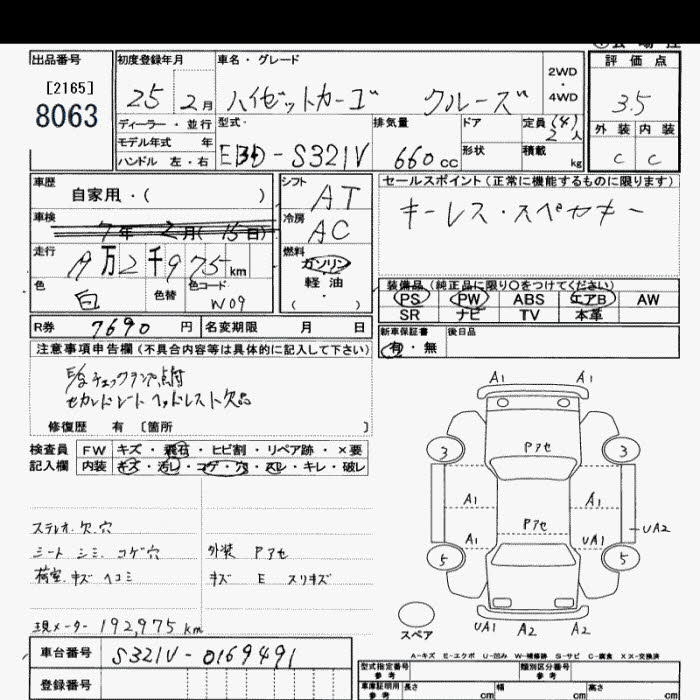 出品番号
[2165]
8063
初度登録年月
25 2月
ディーラー・並行
モデル年式 年
ハンドル 左・右
車名・グレード
ハイゼットカーゴ クルーズ
2WD
・
4WD
型式
EBD-S321V
排気量
660cc
ドア
形状
定員(4)
2人
積載 kg
評価点
3.5
外装 内装
C C
車歴
自家用・( )
車検
7年2月(15日)
走行
19万2千975km
色
白
色替
色コード
W09
シフト
AT
冷房
AC
燃料
ガソリン
軽油
・
( )
R券 7690円
名変期限 月 日
セールスポイント(正常に機能するものに限ります)
キーレス・スペアキー
装備品(純正品に限り○をつけてください)
PS PW ABS エアB AW
SR ナビ TV 本革
新車保証書 後日品
有・無
注意事項申告欄(不具合内容等は具体的に記入して下さい)
E/gチェックランプ点灯
セカンドシートヘッドレスト欠品
修復歴 有 [箇所 ]
検査員
記入欄
FW キズ・飛石・ヒビ割・リペア跡・×要
内装 キズ・汚レ・コゲ・穴・スレ・キレ・破レ
ステレオ欠.穴
シート シミ コゲ穴
荷室 キズ ヘコミ
外装 Pアセ
キズ E スリキズ
現メーター 192,975km
車台番号 S321V-0169491
登録番号
A1 A1
3 3
Pアセ
A1 A1
Pアセ
UA2
A1 UA1
5 5
スペア
UA1 A2 A2
A-キズ E-エクボ U-凹み W-補修跡 S-サビ C-腐食 XX-交換済
型式指定番号
参考
類別区分番号
参考
車庫証明用
参考
長さ cm
幅 cm
高さ cm